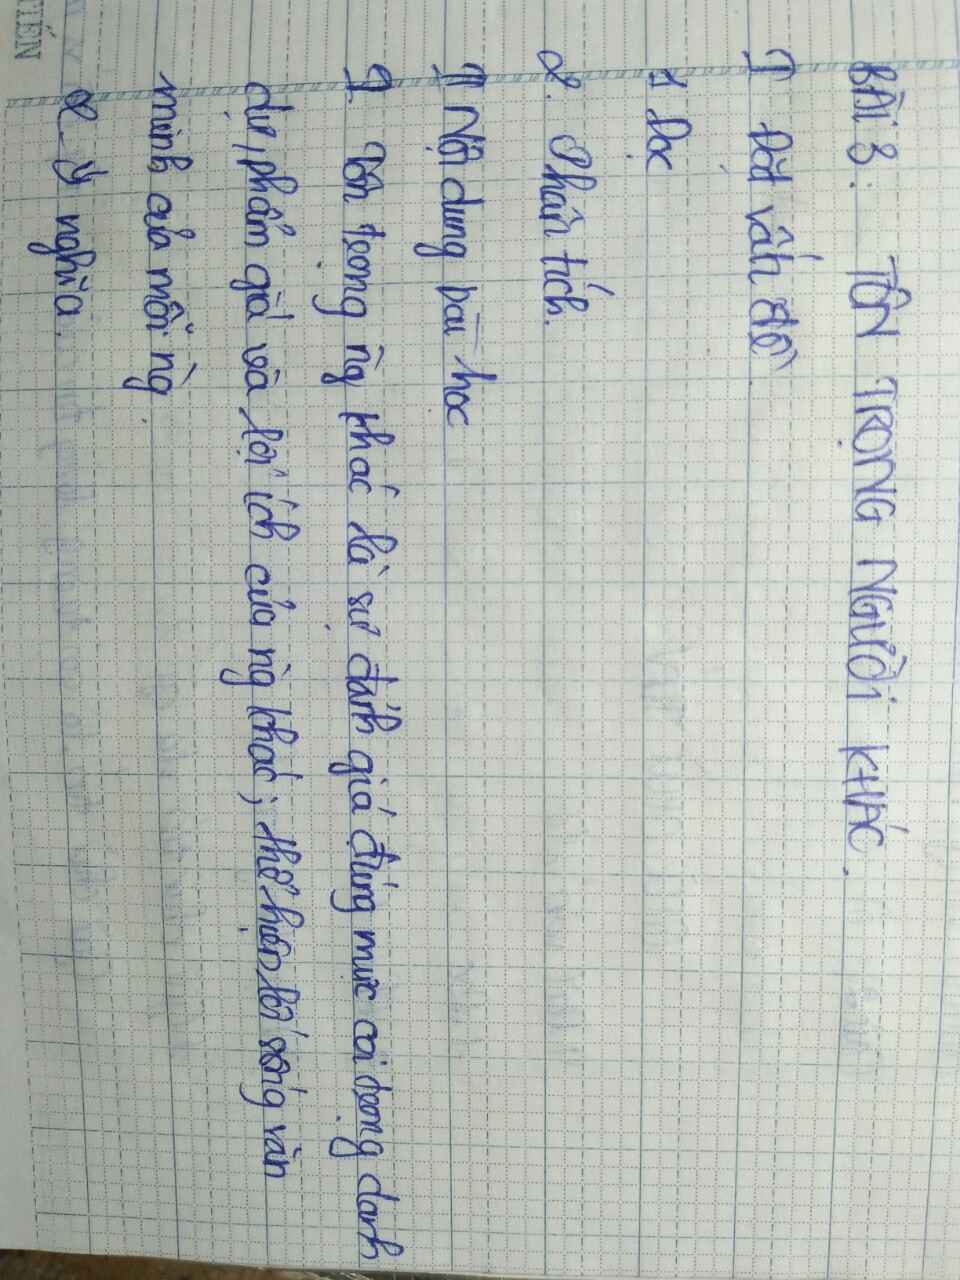 BÀI 3: TÔN TRỌNG NGƯỜI KHÁC.
I Đặt vấn đề
1 Đọc
2. Phân tích.
II Nội dung bài học
1. Tôn trọng ng khác là sự đánh giá đúng mức coi trọng danh
dự, phẩm giá và lợi ích của ng khác; thể hiện lối sống văn
minh của mỗi ng
2. Ý nghĩa.